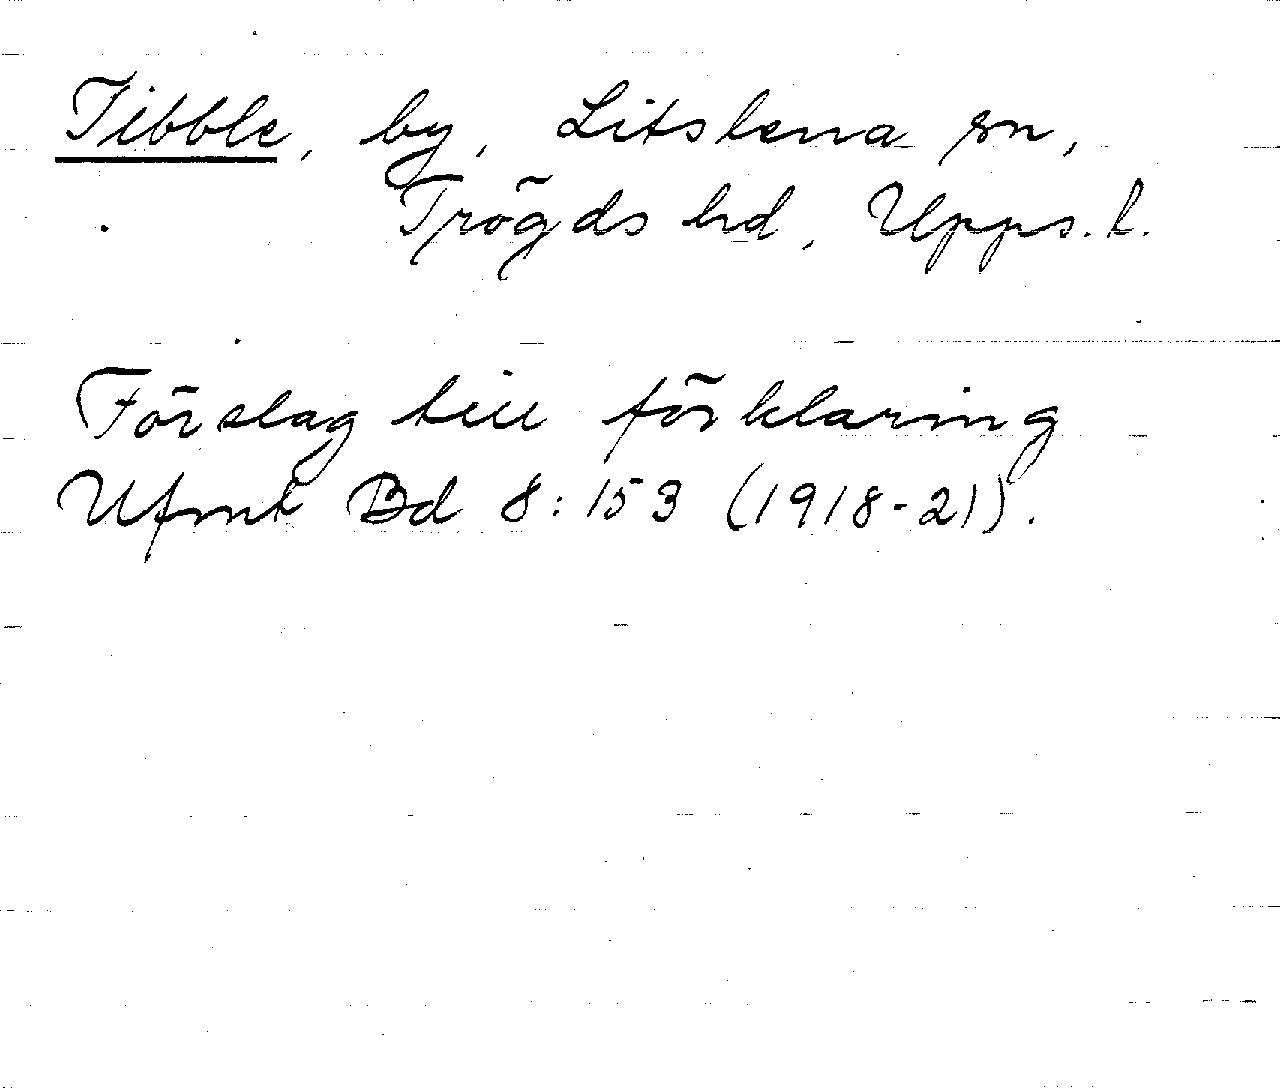 Tibble, by, Litslena sn,
Trögds hd, Upps. l.
Förslag till förklaring
Ufmt Bd 8:153 (1918-21).